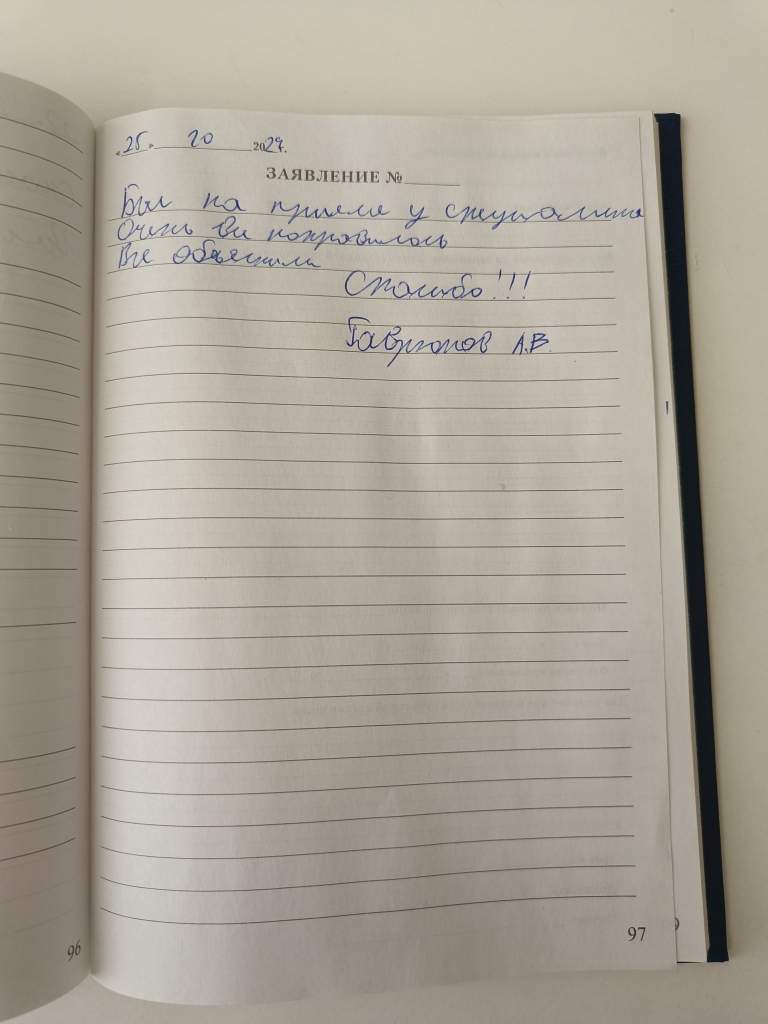 «25» 10 2024.
ЗАЯВЛЕНИЕ №
Был на приеме у специалиста
Очень все понравилось
Все объяснили
Спасибо!!!
А.В.
96
97